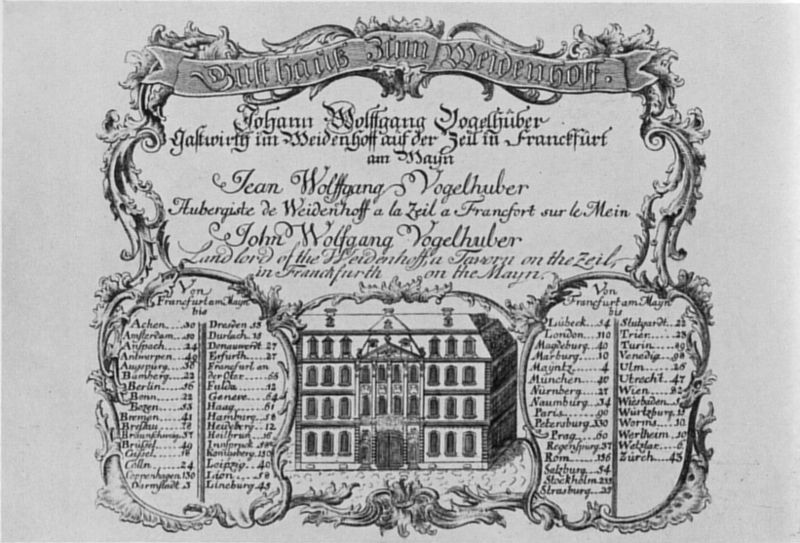 Gasthauß Zum Weidenhoff.
Johann Wolffgang Vogelhüber
Gastwirth im Weidenhoff auf der Zeil in Franckfürt
am Mayn
Jean Wolffgang Vogelhuber
Aubergiste de Weidenhoff a la Zeil a Francfort sur le Mein
John Wolfgang Vogelhuber
Landlord of the Weidenhoff, a Tavern on the Zeil,
in Franckfurth on the Mayn.
Von
Franckfurt am Mayn
bis
Achen 30
Amsterdam
Anspach 24
Antwerpen 49
Augspurg 36
Bamberg 22
Berlin 56
Bonn 22
Bozen 53
Bremen 41
Breslau 78
Braunschweig 37
Brüssel 49
Cassel 18
Cölln 24
Coppenhagen 130
Darmstadt 3
Dresden 53
Durlach 15
Donauwerdt 27
Erfurth 27
Francfurt an
der Oter 68
Fulda 12
Geneve 64
Haag 61
Hamburg 58
Heydelberg 12
Heilbrun 16
Innspruck
Königsberg 150
Leipzig 40
Lion
Lineburg 45
Von
Franckfurt am Mayn
bis
Lübeck 54
London 110
Magdeburg 40
Marburg 10
Mayntz 4
München 40
Nürnberg 37
Naumburg 34
Paris 90
Petersburg 330
Prag 60
Regenspurg 37
Rom 156
Salzburg 54
Stockholm 235
Strasburg 25
Stutgardt 22
Trier 28
Turin 89
Venedig 98
Ulm 26
Utrecht 47
Wien 92
Wisbaden 5
Würtzburg 15
Worms 10
Wertheim 10
Wetzlar 6
Zürch 43